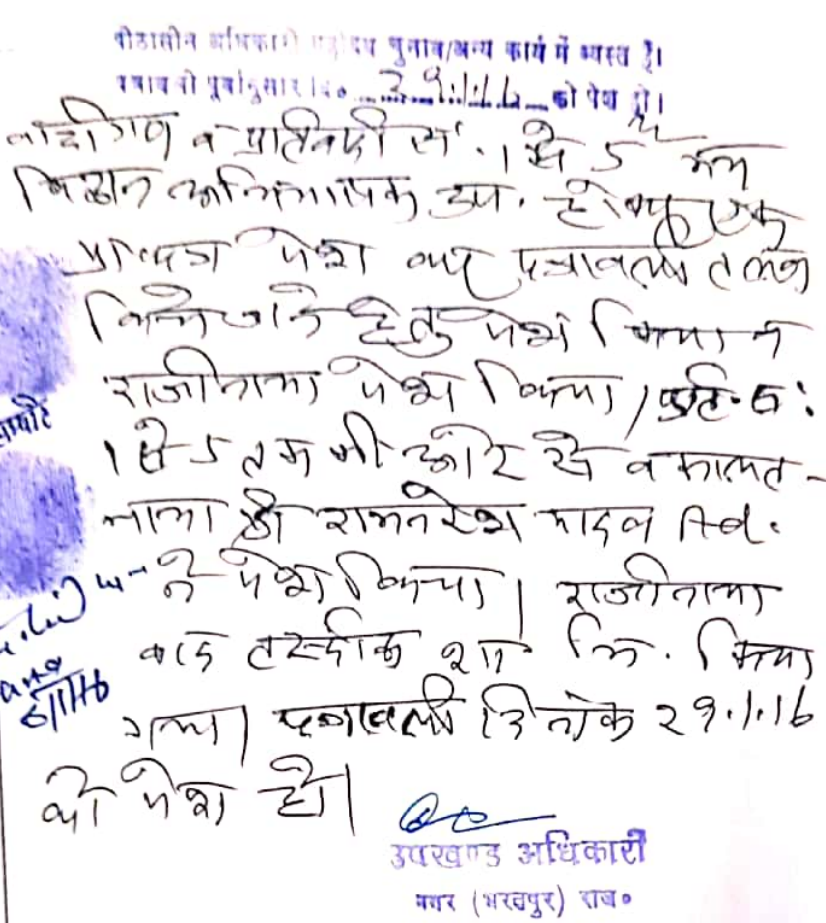 पीठासीन अधिकारी महोदय चुनाव/अन्य कार्य में व्यस्त है।
पत्रावली पूर्वानुसार दि० 29.1.16 को पेश हो।
वादीगण व प्रतिवादी सं. 1 से 5 के
विद्वान अभिभाषक उप. होकर एक
प्रा.पत्र पेश कर पत्रावली तलब
किये जाने हेतु पेश किया व
राजीनामा पेश किया। प्रति. सं.
1 से 5 तक की ओर से वकालत-
नामा श्री रामनरेश यादव Ad.
ने पेश किया। राजीनामा
बाद तस्दीक शा. मि. किया
गया। पत्रावली दिनांक 29.1.16
को पेश हो।
6/1/16
उपखण्ड अधिकारी
नगर (भरतपुर) राज०